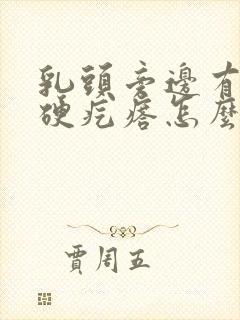 乳頭旁邊有
硬疙瘩怎麼
賈周五